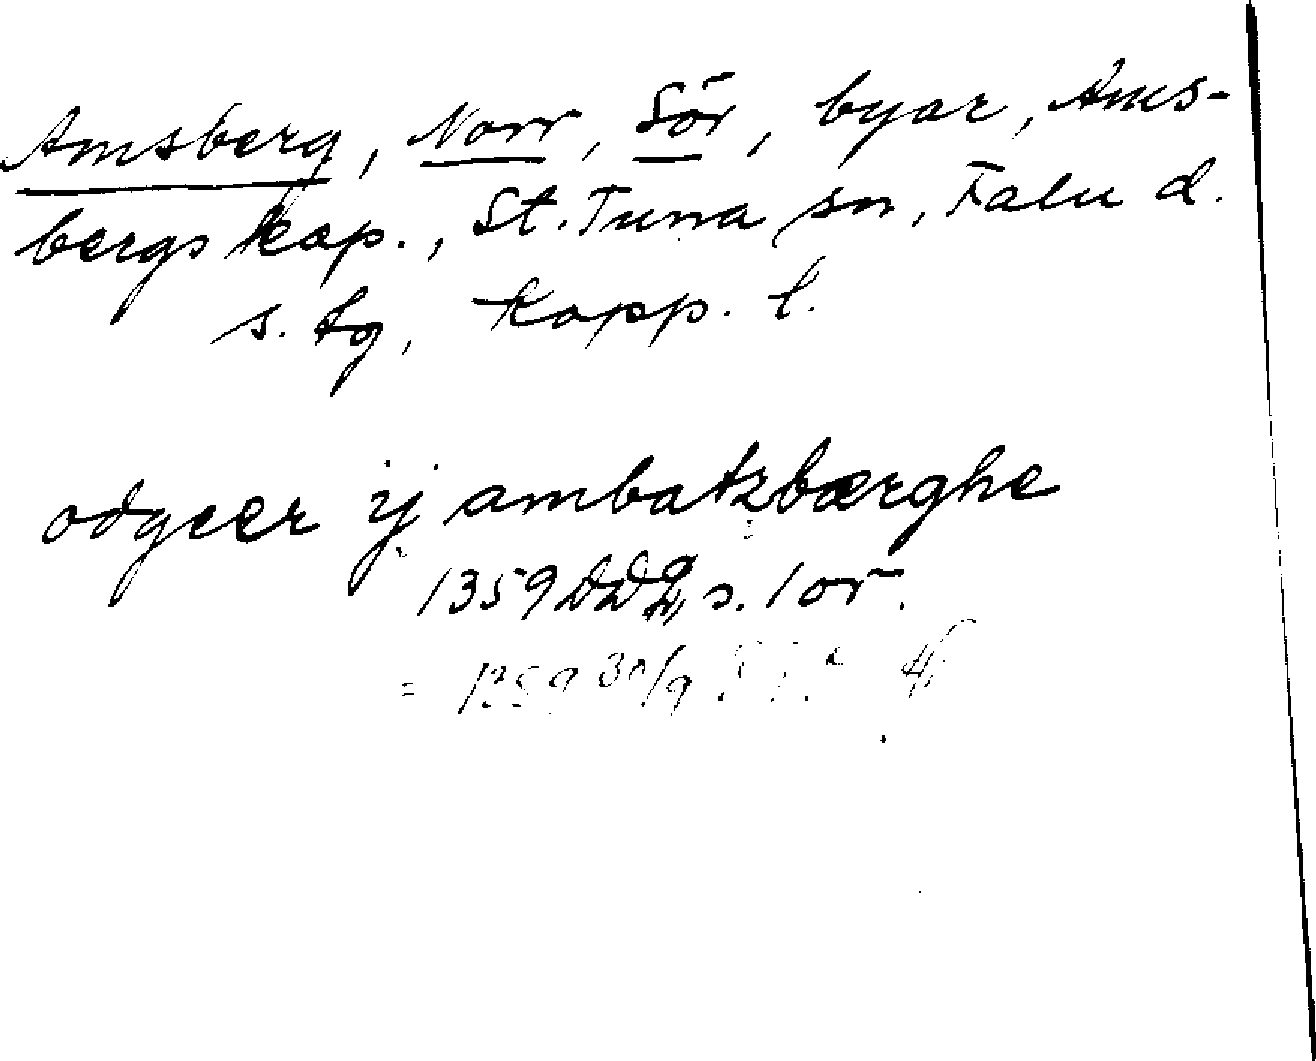 Amsberg, Norr, Sör, byar, Ams-
bergs kap., St. Tuna sn, Falu d.
s. tg, Kopp. l.
odgeer ij ambatzbærghe
1359 DD2, s. 1 or.
= 1359 30/9